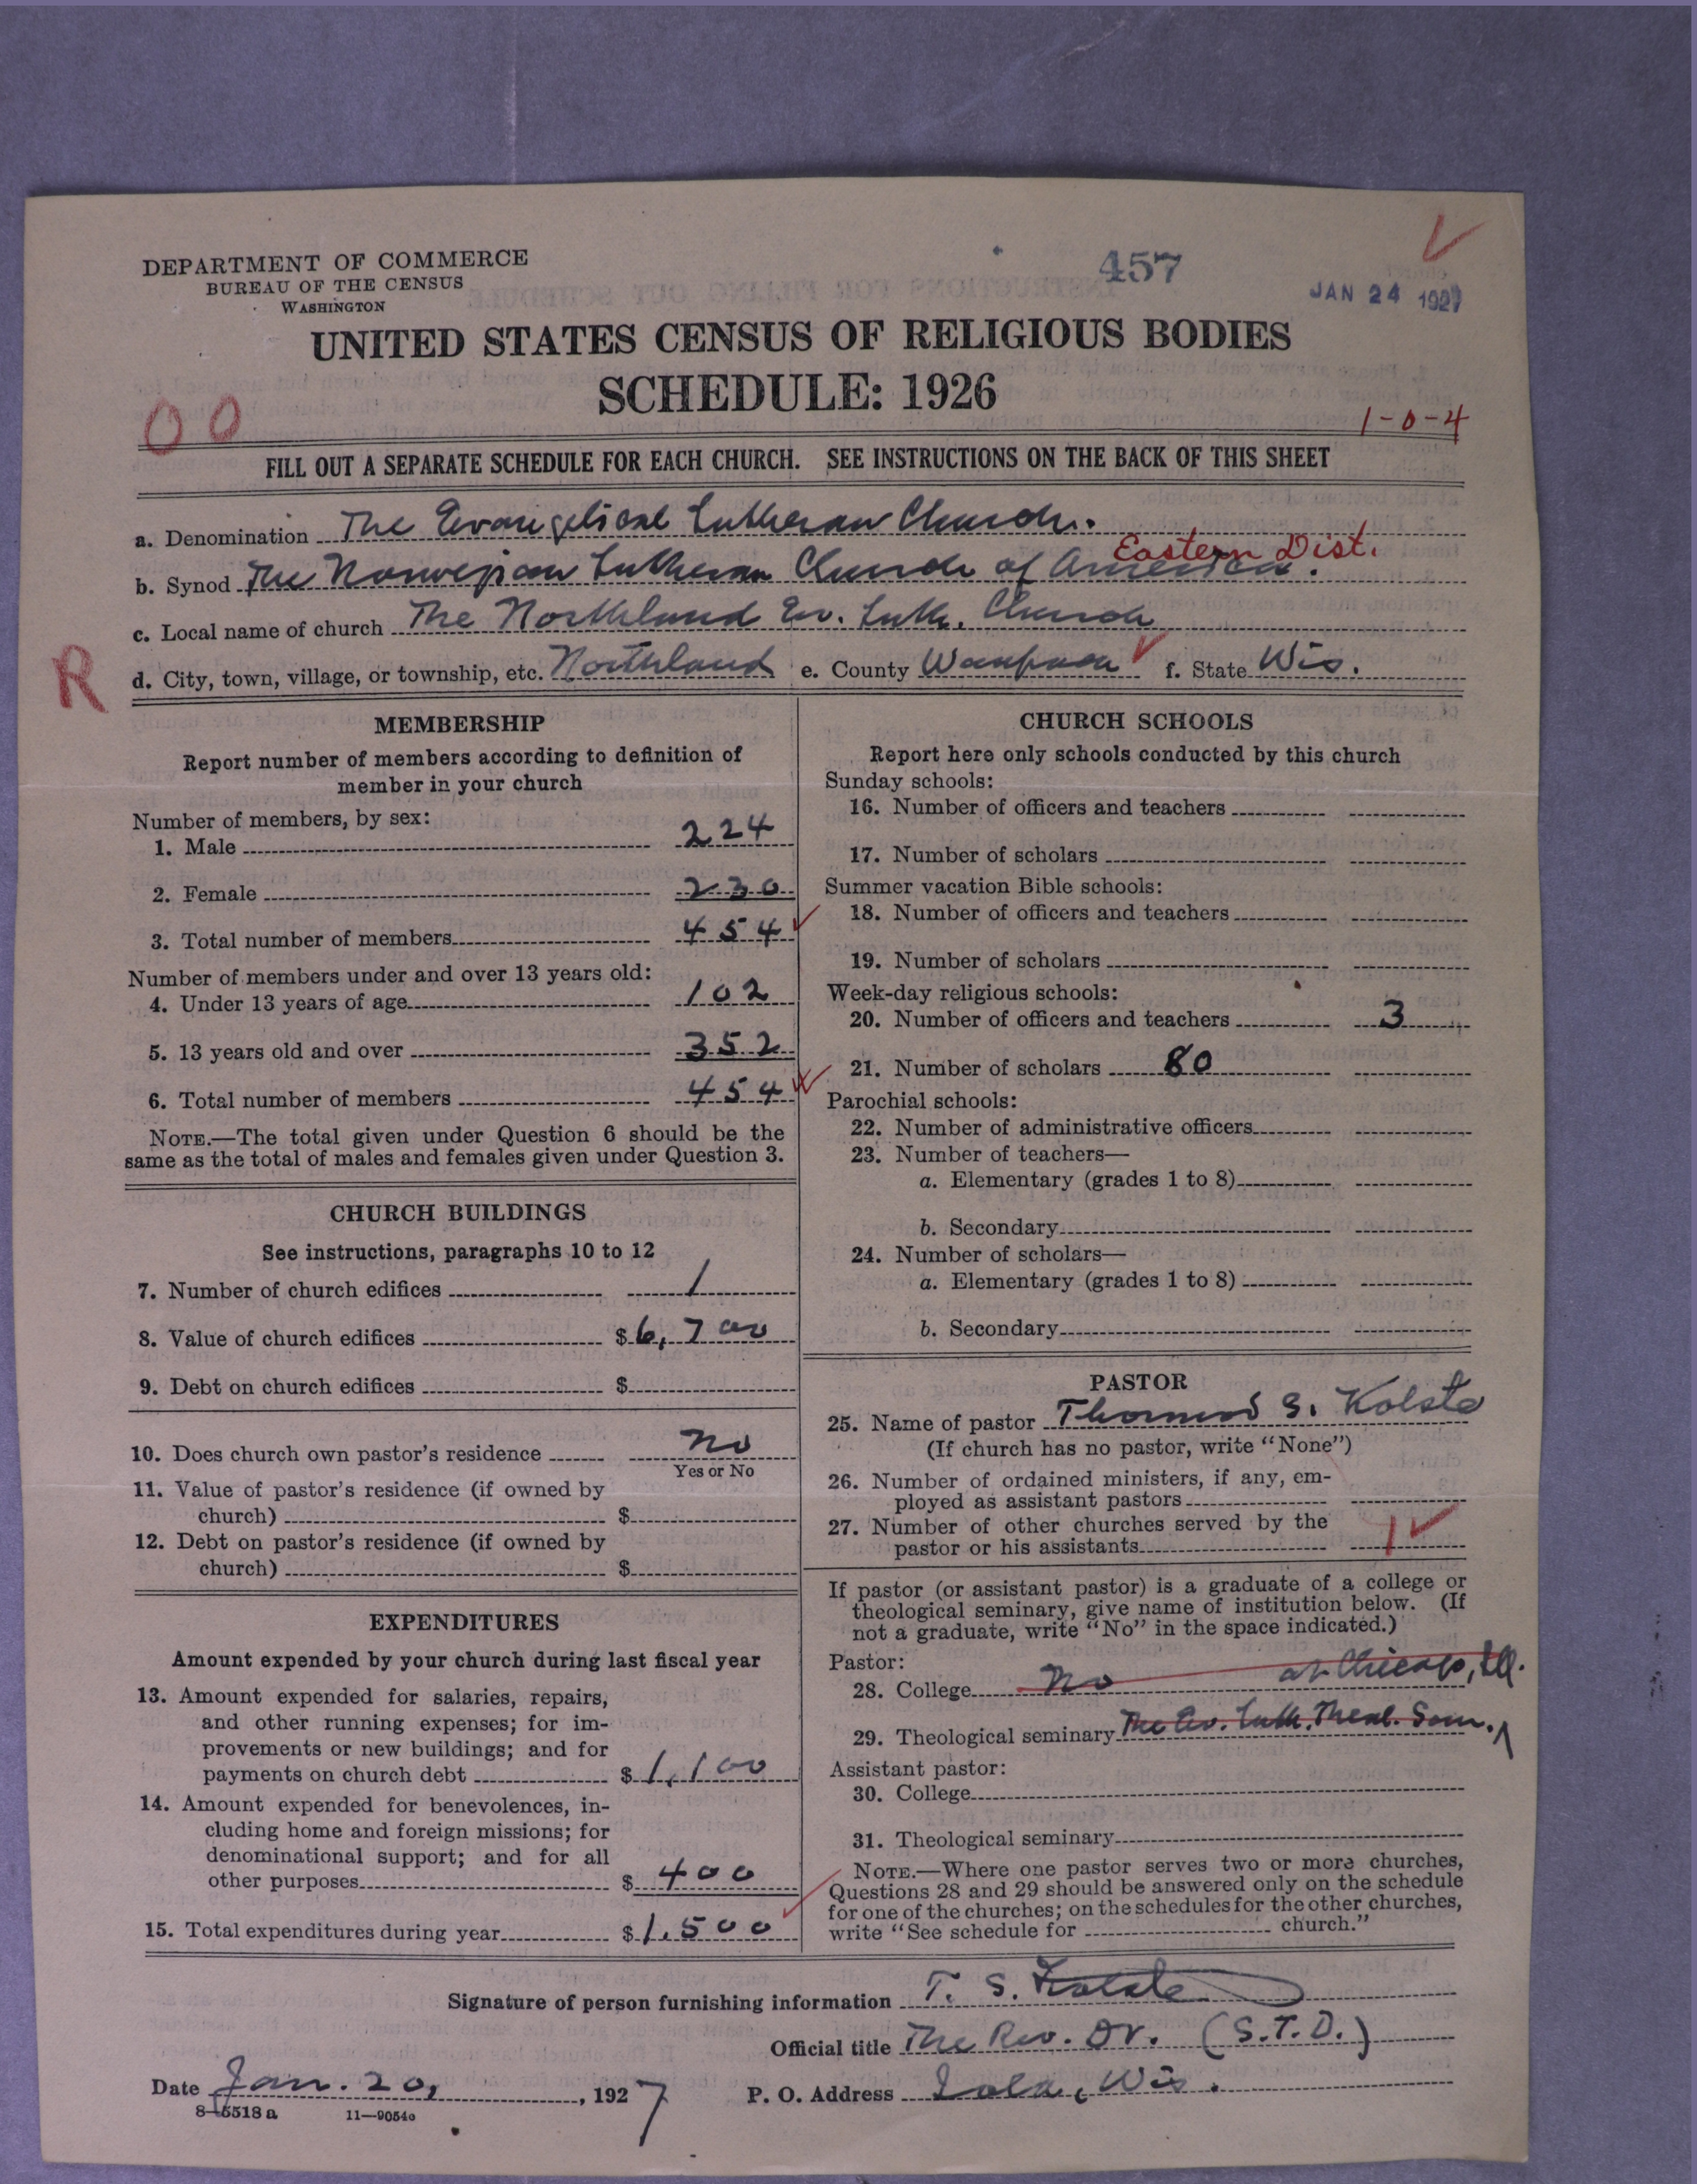 DEPARTMENT OF COMMERCE
BUREAU OF THE CENSUS
WASHINGTON
457
JAN 24 1927
UNITED STATES CENSUS OF RELIGIOUS BODIES
SCHEDULE: 1926
00
1-0-4
FILL OUT A SEPARATE SCHEDULE FOR EACH CHURCH. SEE INSTRUCTIONS ON THE BACK OF THIS SHEET
a. Denomination The Evangelical Lutheran Church.
Eastern Dist.
b. Synod The Norwegian Lutheran Church of America.
c. Local name of church The Northland Ev. Luth. Church
R
d. City, town, village, or township, etc. Northland e. County Waupaca f. State Wis.
MEMBERSHIP
Report number of members according to definition of
member in your church
Number of members, by sex:
1. Male 224
2. Female 230
3. Total number of members 454
Number of members under and over 13 years old:
4. Under 13 years of age 102
5. 13 years old and over 352
6. Total number of members 454
NOTE.—The total given under Question 6 should be the
same as the total of males and females given under Question 3.
CHURCH BUILDINGS
See instructions, paragraphs 10 to 12
7. Number of church edifices 1
8. Value of church edifices $6,700
9. Debt on church edifices $
10. Does church own pastor's residence No
Yes or No
11. Value of pastor's residence (if owned by
church) $
12. Debt on pastor's residence (if owned by
church) $
EXPENDITURES
Amount expended by your church during last fiscal year
13. Amount expended for salaries, repairs,
and other running expenses; for im-
provements or new buildings; and for
payments on church debt $1,100
14. Amount expended for benevolences, in-
cluding home and foreign missions; for
denominational support; and for all
other purposes $400
15. Total expenditures during year $1,500
CHURCH SCHOOLS
Report here only schools conducted by this church
Sunday schools:
16. Number of officers and teachers
17. Number of scholars
Summer vacation Bible schools:
18. Number of officers and teachers
19. Number of scholars
Week-day religious schools:
20. Number of officers and teachers 3
21. Number of scholars 80
Parochial schools:
22. Number of administrative officers
23. Number of teachers—
a. Elementary (grades 1 to 8)
b. Secondary
24. Number of scholars—
a. Elementary (grades 1 to 8)
b. Secondary
PASTOR
25. Name of pastor Thomas S. Kolste
(If church has no pastor, write "None")
26. Number of ordained ministers, if any, em-
ployed as assistant pastors
27. Number of other churches served by the
pastor or his assistants 1
If pastor (or assistant pastor) is a graduate of a college or
theological seminary, give name of institution below. (If
not a graduate, write "No" in the space indicated.)
Pastor:
28. College No at Chicago, Ill.
29. Theological seminary The Ev. Luth. Theol. Sem.
Assistant pastor:
30. College
31. Theological seminary
NOTE.—Where one pastor serves two or more churches,
Questions 28 and 29 should be answered only on the schedule
for one of the churches; on the schedules for the other churches,
write "See schedule for church."
Signature of person furnishing information T. S. Kolste
Official title The Rev. Dr. (S.T.D.)
Date Jan. 20, 1927
P. O. Address Iola, Wis.
8-5518a 11-9054a